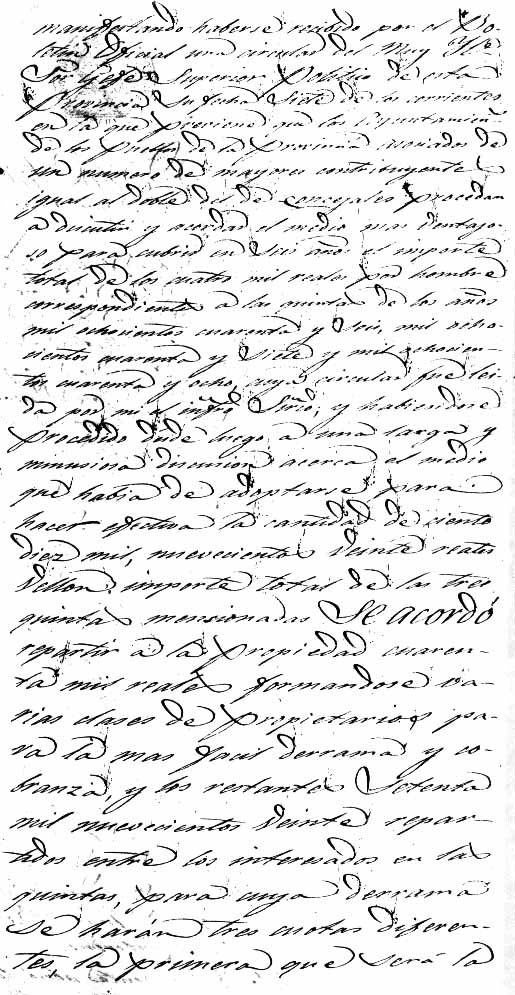 manifestando haberse recibido por el Bo-
letin Oficial una circular del Muy Yltre
Sor Gefe Superior Politico de esta
Provincia, su fecha Siete de los corrientes
en la que previene que los Ayuntamientos
de los Pueblos de la Provincia asociados de
un numero de mayores contribuyentes
igual al doble del de Concejales procedan
a discutir y acordar el medio mas ventajo-
so para cubrir en Seis años el importe
total de los cuatro mil reales por hombre
correspondientes a las quintas de los años
mil ochocientos cuarenta y Seis, mil ocho-
cientos cuarenta y Siete y mil ochocien-
tos cuarenta y ocho, cuya circular fue lei-
da por mi el infro Sirio, y habiendose
procedido desde luego a una larga y
minuciosa discusion acerca el medio
que habia de adoptarse para
hacer efectiva la cantidad de ciento
diez mil, nuevecientos Veinte reales
Vellon importe total de las tres
quintas mensionadas Se acordó
repartir a la Propiedad cuaren-
ta mil reales formandose va-
rias clases de Propietarios pa-
ra la mas facil derrama y co-
branza, y los restantes Setenta
mil nuevecientos Veinte repar-
tidos entre los interesados en las
quintas, para cuya derrama
se harán tres cuotas diferen-
tes, la primera que será la